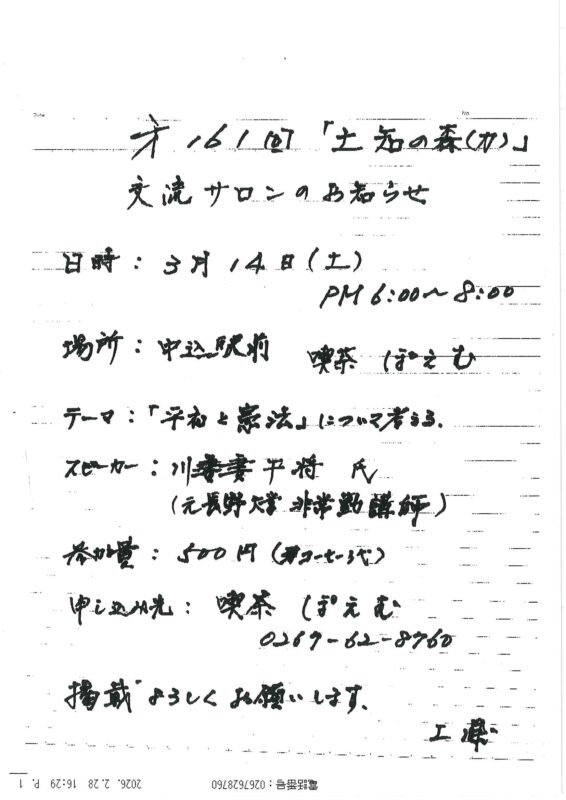 Date
No.
才161回「土知の森(カ)」
交流サロンのお知らせ
日時：3月14日(土)
PM 6:00〜8:00
場所：中込駅前 喫茶 ぽえむ
テーマ：「平和と憲法」について考える.
スピーカー：川 平将 氏
(元長野大学 非常勤講師)
参加費：500円(コーヒー代)
申し込み先：喫茶 ぽえむ
0267-62-8760
掲載よろしくお願いします.
工藤
電話番号：0267628760
2026. 2.28 16:29 P. 1